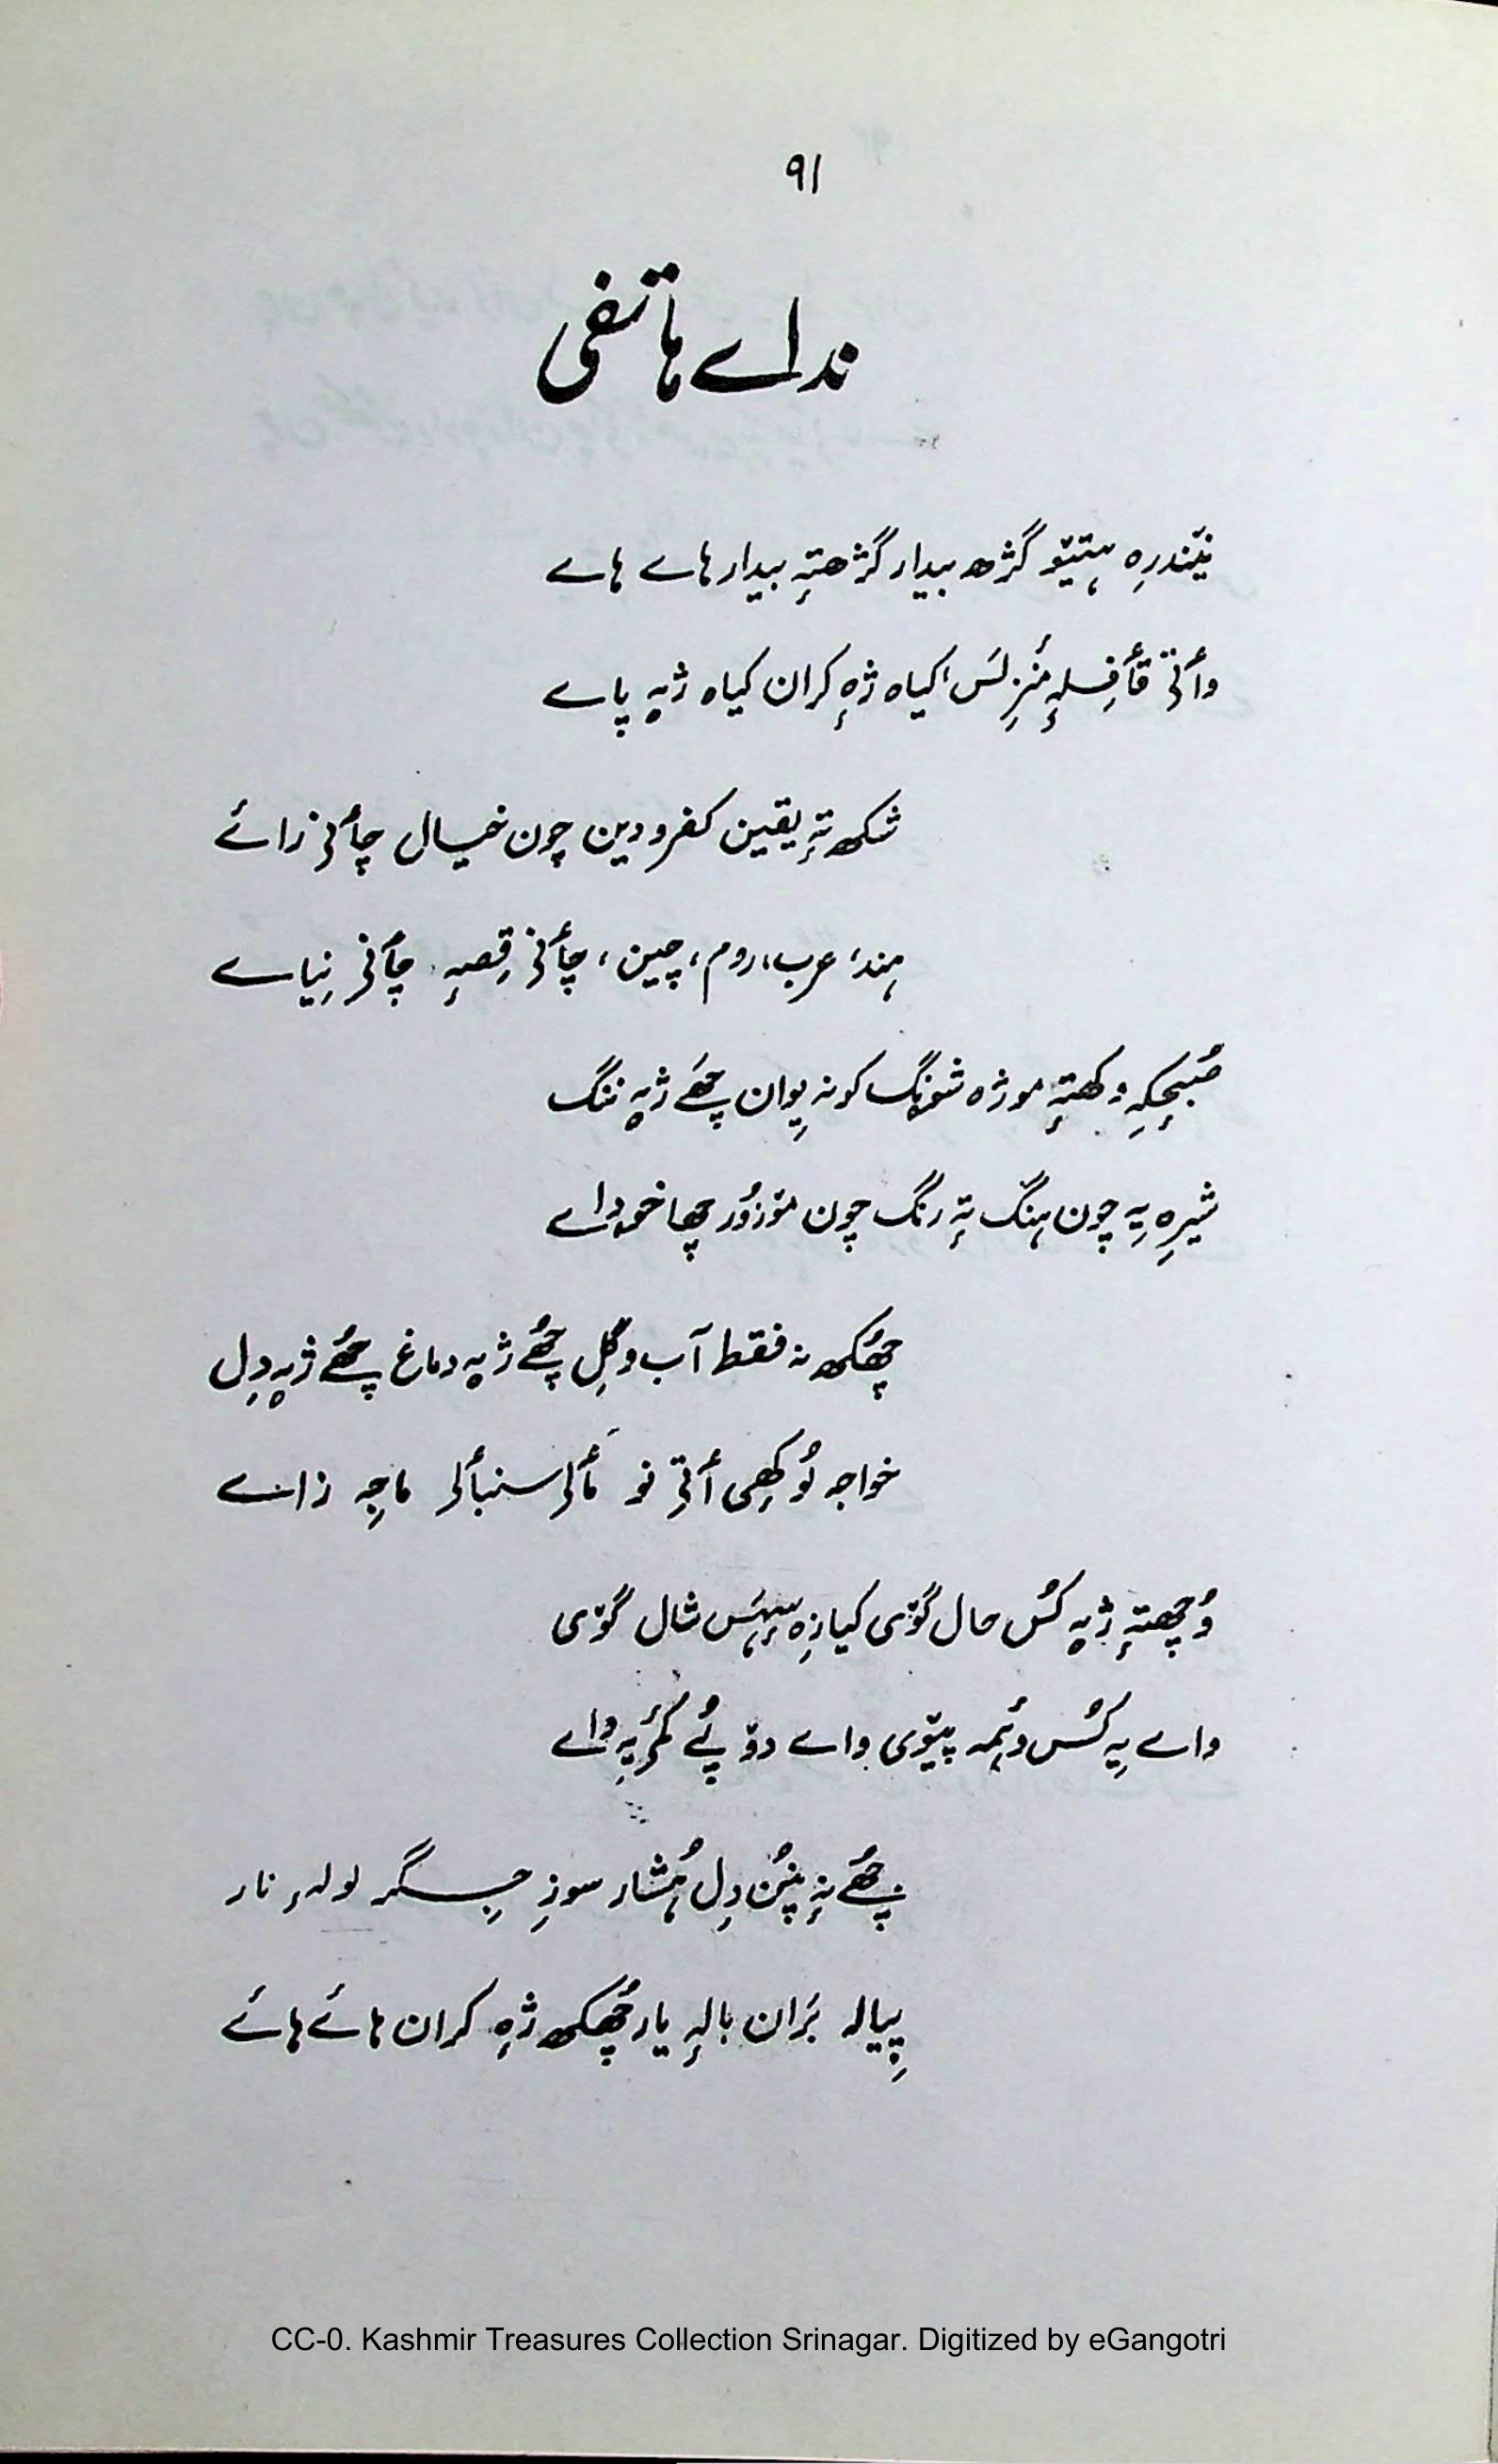 ۹۱
نداے ہاتفی
نیٚندرِہ ہتیٚو گژھ بیدار گژھتہٕ بیدار ہاے ہاے
وأتۍ قأفِلہٕ منٛزِلَس، کیاہ ژہٕ کران کیاہ ژیہٕ پاے
شکھ تہٕ یقین کفر و دین چون خیال چأنۍ زائے
ہند، عرب، روم، چین، چأنۍ قِصہٕ چأنۍ نِیاے
صُبحٕکہِ وکھتہٕ موژہ شونگ کونہ یِوان چھَے ژیہٕ ننگ
شیرِہ یہِ چون ہنگ تہٕ رنگ چون موٚزوٗر چھا خوداے
چھُکھ نہ فقط آب و گِل چھُے ژیہٕ دماغ چھُے ژیہٕ دِل
خواجہ نُو کھیی أتۍ نو مألۍ سنبألۍ ماجہِ زاے
وُچھتہٕ ژیہٕ کُس حال گوٚی کیازِہ سہٕہَس شال گوٚی
واے یہِ کُس وَہمہ پیوٚی واے دوٚپُے کٔمۍ یہِ واے
چھُے نہٕ پنُن دِل ہُشار سوزِ جِگر لولہٕ نار
پیالہ بَران بالہٕ یار چھُکھ ژہٕ کران ہائے ہائے
CC-0. Kashmir Treasures Collection Srinagar. Digitized by eGangotri